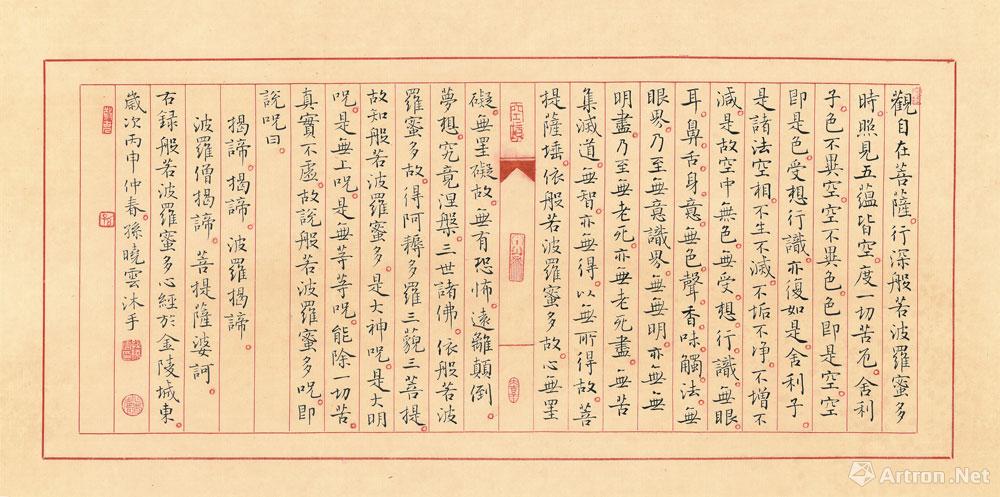 觀自在菩薩。行深般若波羅蜜多
時。照見五蘊皆空。度一切苦厄。舍利
子。色不異空。空不異色。色即是空。空
即是色。受想行識。亦復如是。舍利子。
是諸法空相。不生不滅。不垢不净。不增不
減。是故空中無色。無受想行識。無眼
耳鼻舌身意。無色聲香味觸法。無
眼界。乃至無意識界。無無明。亦無無
明盡。乃至無老死。亦無老死盡。無苦
集滅道。無智亦無得。以無所得故。菩
提薩埵。依般若波羅蜜多故。心無罣
礙。無罣礙故。無有恐怖。遠離顛倒
夢想。究竟涅槃。三世諸佛。依般若波
羅蜜多故。得阿耨多羅三藐三菩提。
故知般若波羅蜜多。是大神呪。是大明
呪。是無上呪。是無等等呪。能除一切苦。
真實不虛。故說般若波羅蜜多呪。即
說呪曰。
揭諦。揭諦。波羅揭諦。
波羅僧揭諦。菩提薩婆訶。
右録般若波羅蜜多心經於金陵城東。
歲次丙申仲春。孫曉雲沐手
Artron.Net